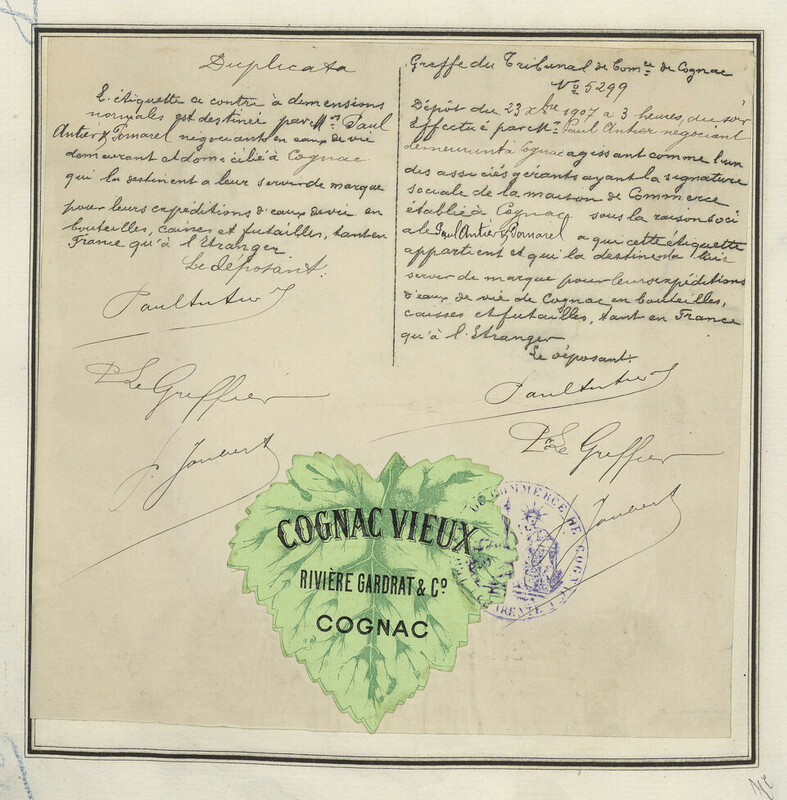 Duplicata
L'étiquette ci contre à dimensions
normales est destinée par Mrs Paul
Antier & Pomarel négociants en eaux de vie
demeurant et domicilié à Cognac
qui la destinent a leur servir de marque
pour leurs expéditions d'eaux de vie en
bouteilles, caisses et futailles, tant en
France qu'à l'Etranger
Le déposant:
Paul Antier
Pr Le Greffier
P. Joubert
Greffe du Tribunal de Comce de Cognac
No 5299
Dépôt du 23 Xbre 1907 a 3 heures, du soir
Effectué par Mr Paul Antier négociant
demeurant à Cognac agissant comme l'un
des associés gérants ayant la signature
sociale de la maison de Commerce
établie à Cognac sous la raison soci
ale Paul Antier & Pomarel a qui cette étiquette
appartient et qui la destine à lui
servir de marque pour leurs expéditions
d'eaux de vie de Cognac en bouteilles,
caisses et futailles, tant en France
qu'à l'Etranger
Le déposant:
Paul Antier
Pr Le Greffier
Joubert
COGNAC VIEUX
RIVIÈRE GARDRAT & Co
COGNAC
COMMERCE DE COGNAC